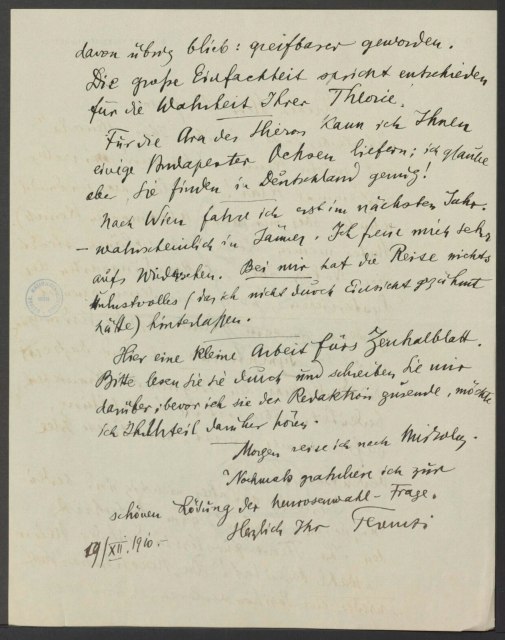 davon übrig blieb: greifbarer geworden.
Die große Einfachheit spricht entschieden
für die Wahrheit Ihrer Theorie.
Für die Ara des Hieros kann ich Ihnen
einige Budapester Ochsen liefern; ich glaube
aber Sie finden in Deutschland genug!
Nach Wien fahre ich erst im nächsten Jahr.
– wahrscheinlich in Jänner. Ich freue mich sehr
aufs Wiedersehen. Bei mir hat die Reise nichts
Unlustvolles (das ich nicht durch Einsicht gezähmt
hätte) hinterlassen.
Hier eine kleine Arbeit fürs Zentralblatt.
Bitte lesen Sie sie durch und schreiben Sie mir
darüber, bevor ich sie der Redaktion zusende, möchte
ich Ihr Urteil darüber hören.
Morgen reise ich nach Miskolcz.
Nochmals gratuliere ich zur
schönen Lösung der Neurosenwahl-Frage.
Herzlich Ihr Ferenczi
19/XII. 1910.